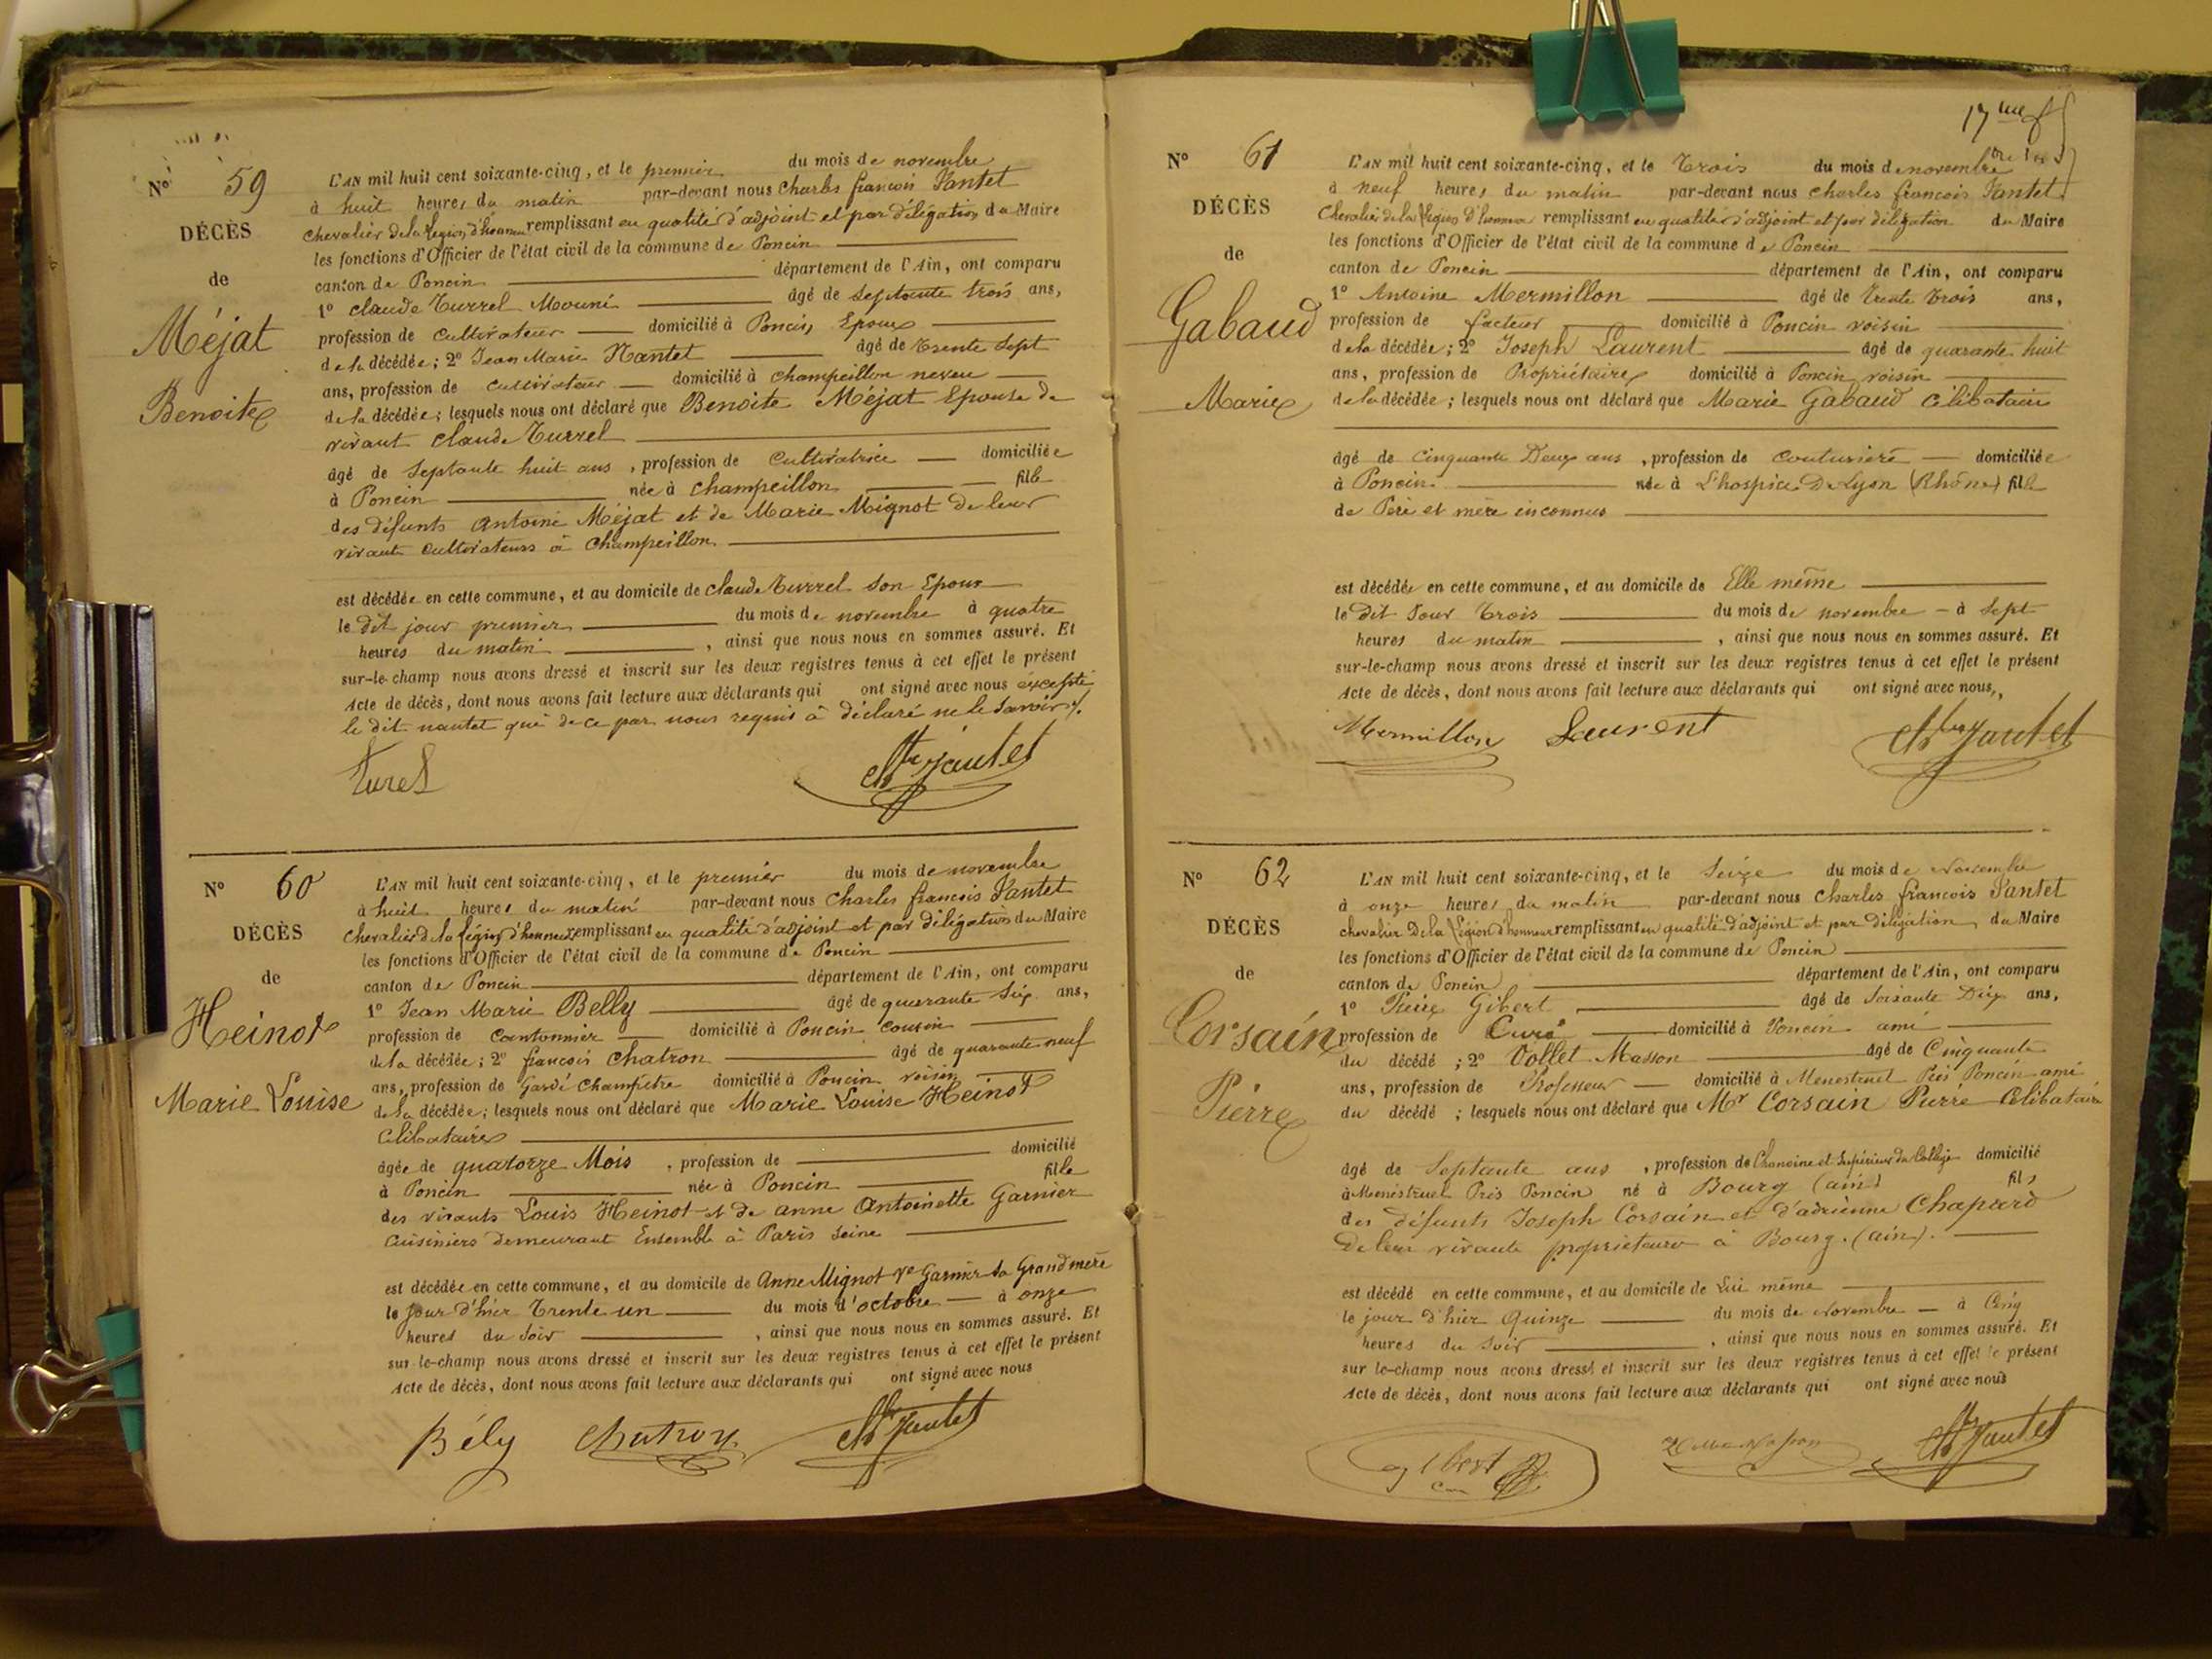 Nº 59
DÉCÈS
de
Méjat
Benoite
L'AN mil huit cent soixante-cinq, et le premier du mois de novembre
à huit heures du matin par-devant nous Charles françois Jantet
Chevalier de la Légion d'honneur remplissant en qualité d'adjoint et par délégation du Maire
les fonctions d'Officier de l'état civil de la commune de Poncin
canton de Poncin département de l'Ain, ont comparu
1º Claude Turrel Mouni âgé de Septante trois ans,
profession de Cultivateur domicilié à Poncin Epoux
de la décédée ; 2º Jean Marie Nantet âgé de trente sept
ans, profession de Cultivateur domicilié à Champeillon neveu
de la décédée ; lesquels nous ont déclaré que Benoite Méjat Epouse de
vivant Claude Turrel
âgé de Septante huit ans, profession de Cultivatrice domiciliée
à Poncin née à Champeillon fille
des défunts Antoine Méjat et de Marie Mignot de leur
vivants Cultivateurs à Champeillon
est décédée en cette commune, et au domicile de Claude Turrel son Epoux
le dit jour premier du mois de novembre à quatre
heures du matin, ainsi que nous nous en sommes assuré. Et
sur-le-champ nous avons dressé et inscrit sur les deux registres tenus à cet effet le présent
Acte de décès, dont nous avons fait lecture aux déclarants qui ont signé avec nous excepté
le dit nantet qui de ce par nous requis à déclaré ne le savoir ./.
Turel Ch Jantet
Nº 60
DÉCÈS
de
Heinot
Marie Louise
L'AN mil huit cent soixante-cinq, et le premier du mois de novembre
à huit heures du matin par-devant nous Charles françois Jantet
Chevalier de la légion d'honneur remplissant en qualité d'adjoint et par délégation du Maire
les fonctions d'Officier de l'état civil de la commune de Poncin
canton de Poncin département de l'Ain, ont comparu
1º Jean Marie Belly âgé de quarante six ans,
profession de Cantonnier domicilié à Poncin Cousin
de la décédée ; 2º françois Chatron âgé de quarante neuf
ans, profession de Garde Champêtre domicilié à Poncin voisin
de la décédée ; lesquels nous ont déclaré que Marie Louise Heinot
Célibataire
âgée de quatorze Mois, profession de domicilié
à Poncin née à Poncin fille
des vivants Louis Heinot et de Anne Antoinette Garnier
Cuisiniers Demeurant Ensemble à Paris Seine
est décédée en cette commune, et au domicile de Anne Mignot Ve Garnier sa Grand mère
le Jour d'hier Trente un du mois d'octobre à onze
heures du Soir, ainsi que nous nous en sommes assuré. Et
sur-le-champ nous avons dressé et inscrit sur les deux registres tenus à cet effet le présent
Acte de décès, dont nous avons fait lecture aux déclarants qui ont signé avec nous
Bély Chatron Ch Jantet
17me
Nº 61
DÉCÈS
de
Gabaud
Marie
L'AN mil huit cent soixante-cinq, et le Trois du mois de novembre
à neuf heures du matin par-devant nous Charles françois Jantet
Chevalier de la Légion d'honneur remplissant en qualité d'adjoint et par délégation du Maire
les fonctions d'Officier de l'état civil de la commune de Poncin
canton de Poncin département de l'Ain, ont comparu
1º Antoine Mermillon âgé de Trente Trois ans,
profession de facteur domicilié à Poncin voisin
de la décédée ; 2º Joseph Laurent âgé de quarante huit
ans, profession de Propriétaire domicilié à Poncin voisin
de la décédée ; lesquels nous ont déclaré que Marie Gabaud Célibataire
âgé de Cinquante Deux ans, profession de couturière domiciliée
à Poncin née à L'hospice De Lyon (Rhône) fille
de Père et mère inconnus
est décédée en cette commune, et au domicile de Elle même
le dit Jour Trois du mois de novembre à Sept
heures du matin, ainsi que nous nous en sommes assuré. Et
sur-le-champ nous avons dressé et inscrit sur les deux registres tenus à cet effet le présent
Acte de décès, dont nous avons fait lecture aux déclarants qui ont signé avec nous,,
Mermillon Laurent Ch Jantet
Nº 62
DÉCÈS
de
Corsain
Pierre
L'AN mil huit cent soixante-cinq, et le Seize du mois de Novembre
à onze heures du matin par-devant nous Charles françois Jantet
chevalier De la Légion d'honneur remplissant en qualité d'adjoint et par délégation du Maire
les fonctions d'Officier de l'état civil de la commune de Poncin
canton de Poncin département de l'Ain, ont comparu
1º Pierre Gibert âgé de Soixante Dix ans,
profession de Curé domicilié à Poncin ami
du décédé ; 2º Vollet Masson âgé de Cinquante
ans, profession de Professeur domicilié à Menestruel Près Poncin ami
du décédé ; lesquels nous ont déclaré que Mr Corsain Pierre Célibataire
âgé de Septante ans, profession de Chanoine et Supérieur du Collège domicilié
à Menestruel Près Poncin né à Bourg (ain) fils
des défunts Joseph Corsain et d'adrienne Chapard
De leur vivants propriétaires à Bourg. (ain).
est décédé en cette commune, et au domicile de Lui même
le jour d'hier Quinze du mois de Novembre à Cinq
heures du Soir, ainsi que nous nous en sommes assuré. Et
sur le-champ nous avons dressé et inscrit sur les deux registres tenus à cet effet le présent
Acte de décès, dont nous avons fait lecture aux déclarants qui ont signé avec nous
gibert Masson Ch Jantet